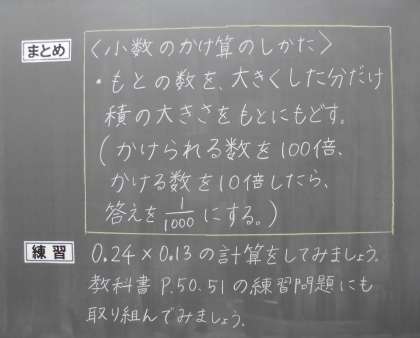 まとめ
〈小数のかけ算のしかた〉
・もとの数を、大きくした分だけ
積の大きさをもとにもどす。
(かけられる数を100倍、
かける数を10倍したら、
答えを1/1000にする。)
練習
0.24×0.13の計算をしてみましょう。
教科書P.50.51の練習問題にも
取り組んでみましょう。